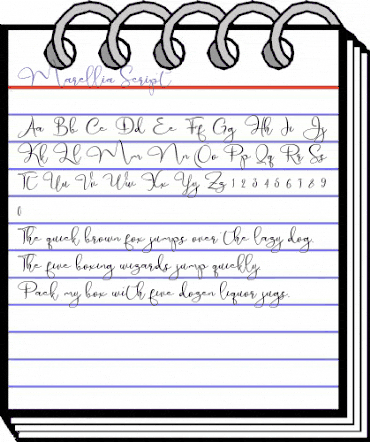 Marellia Script
Aa Bb Cc Dd Ee Ff Gg Hh Ii Jj
Kk Ll Mm Nn Oo Pp Qq Rr Ss
Tt Uu Vv Ww Xx Yy Zz 1 2 3 4 5 6 7 8 9
0
The quick brown fox jumps over the lazy dog.
The five boxing wizards jump quickly.
Pack my box with five dozen liquor jugs.